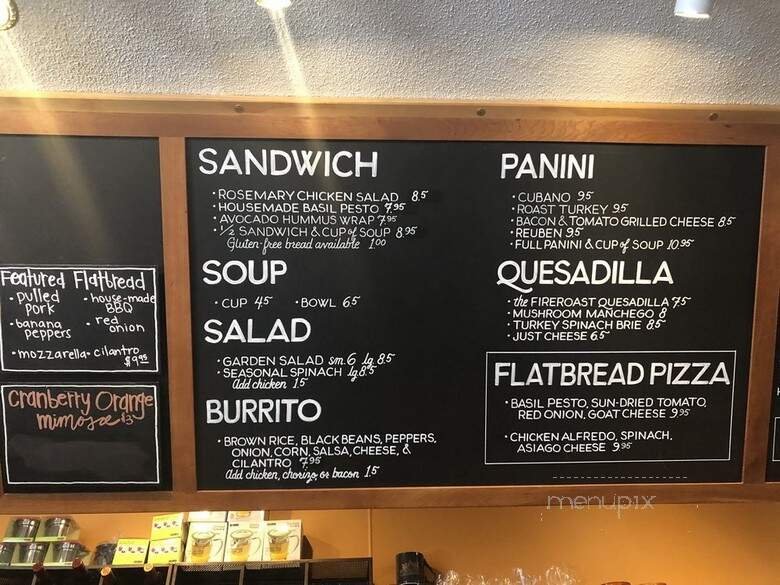 Featured Flatbread
• pulled pork
• house-made BBQ
• banana peppers
• red onion
• mozzarella • cilantro
$9.95
Cranberry Orange
mimosa $3
SANDWICH
• ROSEMARY CHICKEN SALAD 8.5
• HOUSEMADE BASIL PESTO 7.95
• AVOCADO HUMMUS WRAP 7.95
• 1/2 SANDWICH & CUP of SOUP 8.95
Gluten-free bread available 1.00
SOUP
• CUP 4.5 • BOWL 6.5
SALAD
• GARDEN SALAD sm. 6 lg. 8.5
• SEASONAL SPINACH lg. 8.5
Add chicken 1.5
BURRITO
• BROWN RICE, BLACK BEANS, PEPPERS,
ONION, CORN, SALSA, CHEESE, &
CILANTRO 7.95
Add chicken, chorizo, or bacon 1.5
PANINI
• CUBANO 9.5
• ROAST TURKEY 9.5
• BACON & TOMATO GRILLED CHEESE 8.5
• REUBEN 9.5
• FULL PANINI & CUP of SOUP 10.95
QUESADILLA
• the FIREROAST QUESADILLA 7.5
• MUSHROOM MANCHEGO 8
• TURKEY SPINACH BRIE 8.5
• JUST CHEESE 6.5
FLATBREAD PIZZA
• BASIL PESTO, SUN-DRIED TOMATO,
RED ONION, GOAT CHEESE 9.95
• CHICKEN ALFREDO, SPINACH,
ASIAGO CHEESE 9.95
menupix